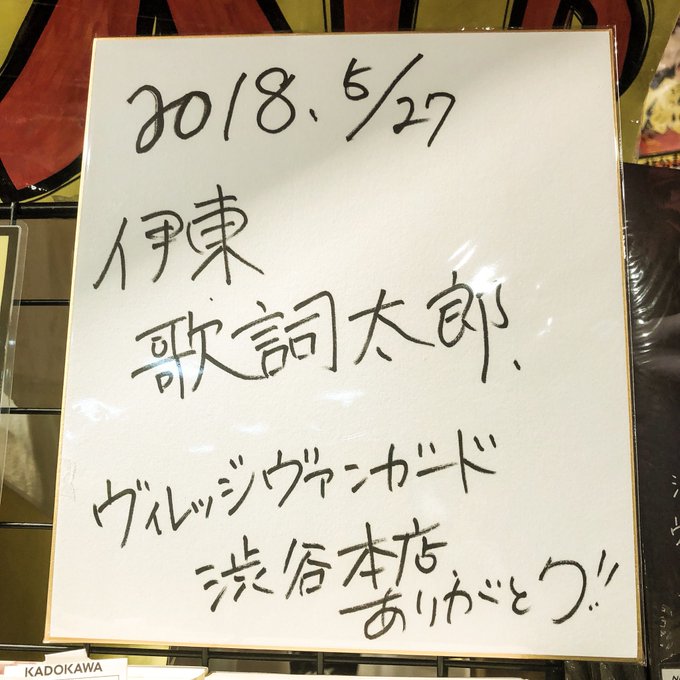 2018. 5/27
伊東
歌詞太郎、
ヴィレッジヴァンガード
渋谷本店、
ありがとウ!!
KADOKAWA